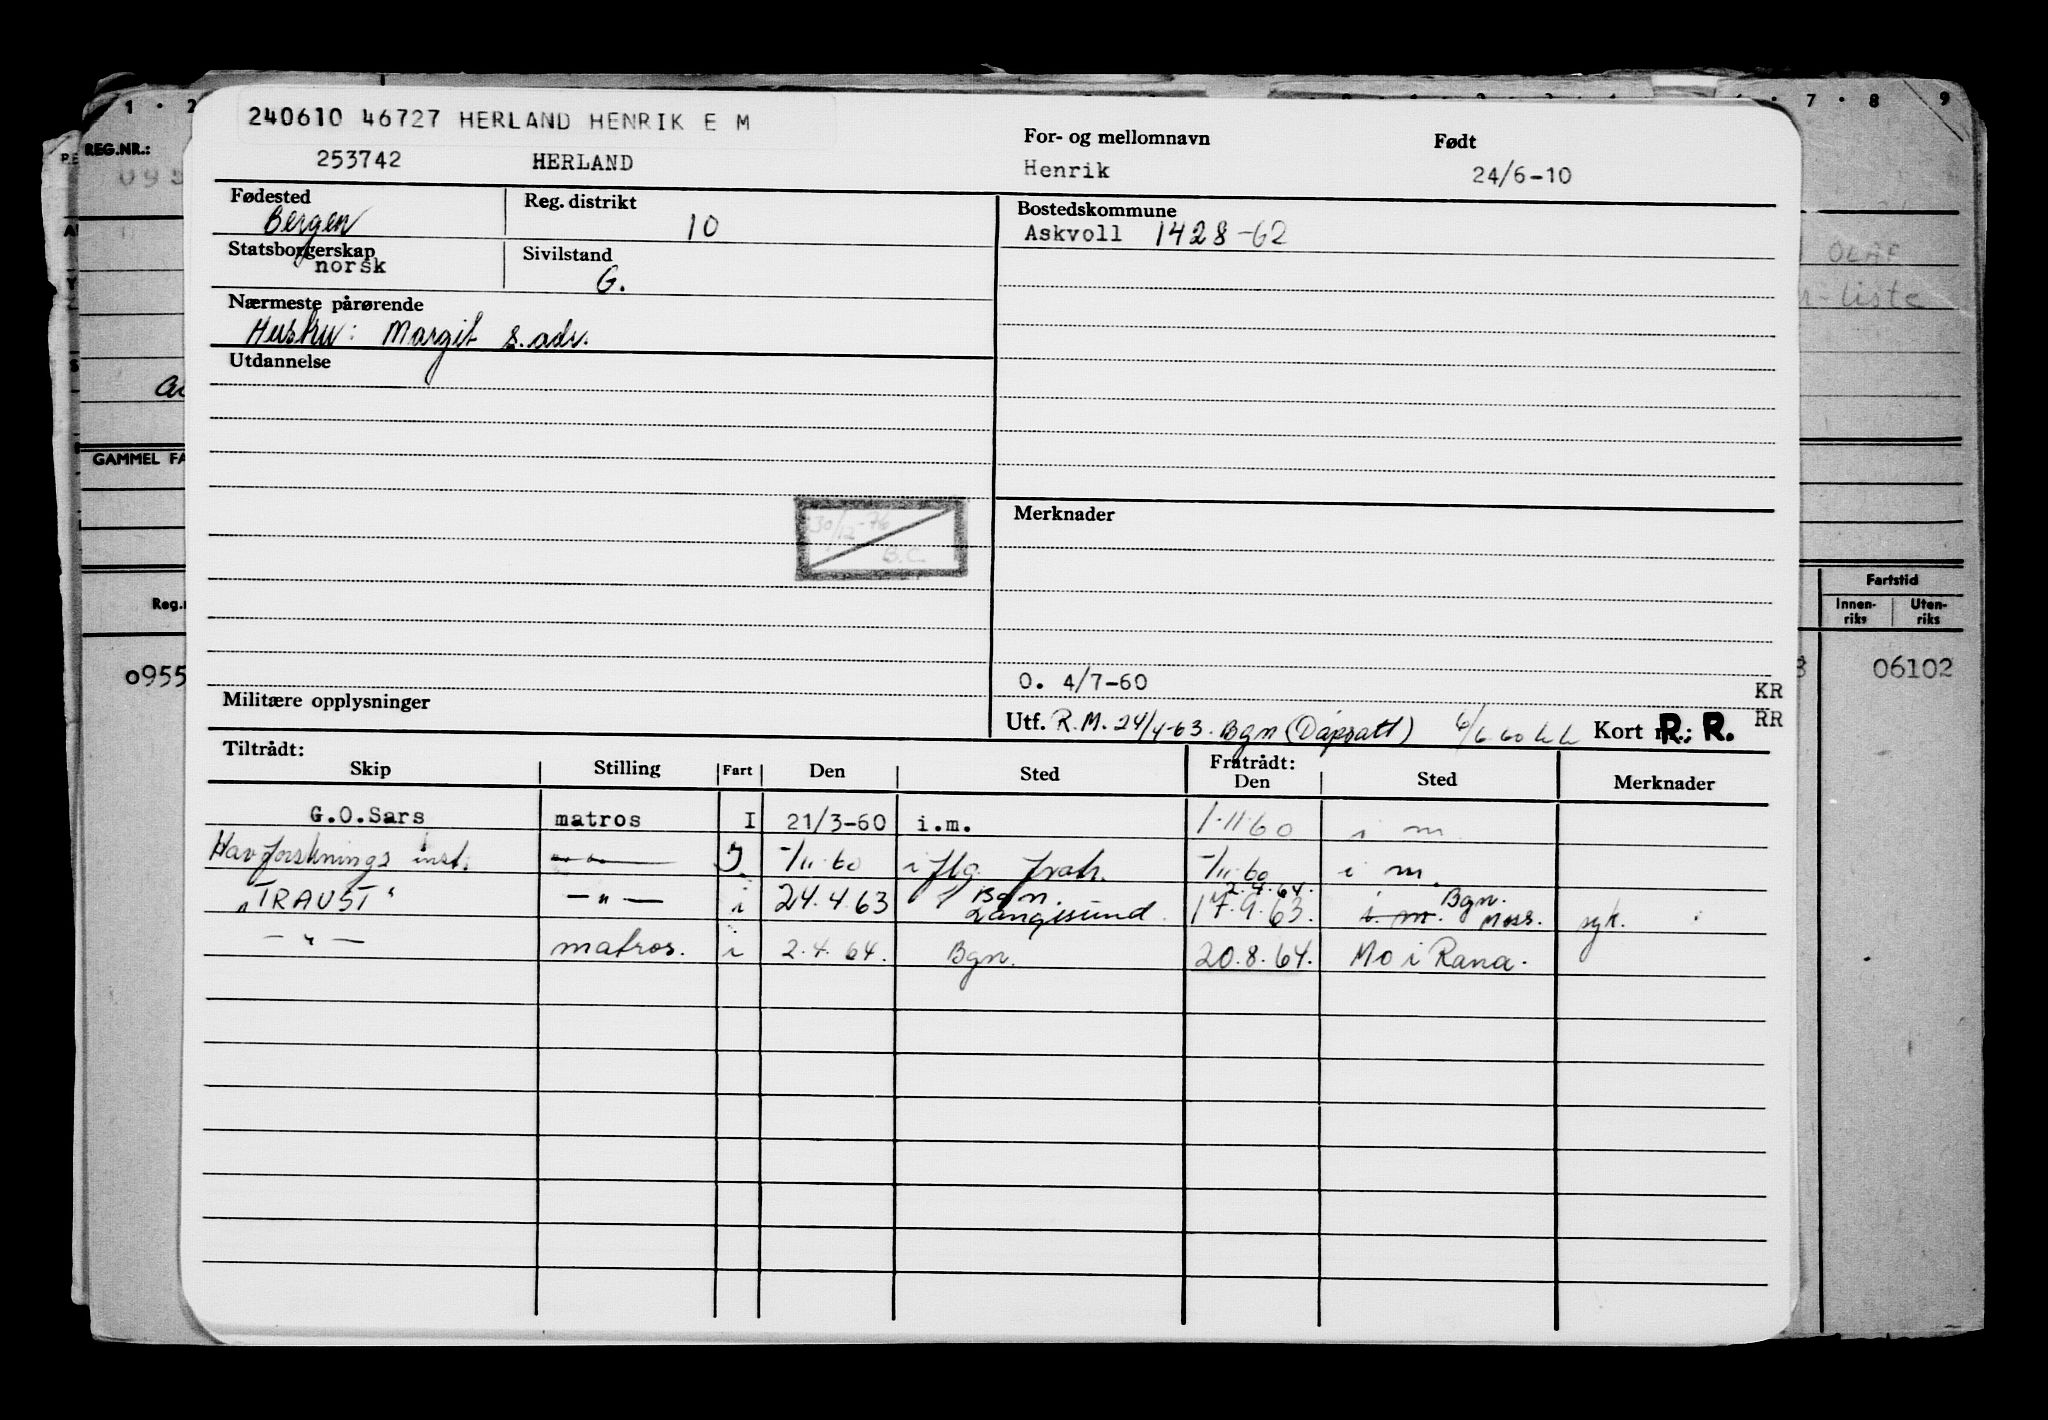 1 . 2 7 . 8 9
REG.NR.:
240610 46727 HERLAND HENRIK E M
253742 HERLAND
For- og mellomnavn Født
Henrik 24/6-10
Fødested Reg. distrikt Bostedskommune
Bergen 10 Askvoll 1428-62
Statsborgerskap Sivilstand
norsk G.
OLAF
liste
Nærmeste pårørende
Hustru: Margit s. adr.
Utdannelse
GAMMEL FA
30/12-76
B.C.
Merknader
Fartstid
Innen-riks Uten-riks
Reg.
0955 06102
O. 4/7-60 KR
Militære opplysninger
RR
Utf. R.M. 24/4-63. Bgn (Dåpsatt) 6/6 60 Kort R.: R.
Tiltrådt: Fratrådt:
Skip Stilling Fart Den Sted Den Sted Merknader
G.O.Sars matros I 21/3-60 i.m. 1-11-60 i m
Havforsknings inst. -"- I -/11-60 i flg fratr. -/11-60 i m.
2.4.64. Bgn.
"TRAUST" -"- i 24.4.63 Bgn. Langesund. 17.9.63. i. m. Moss. syk.
-"- matros. i 2.4.64. Bgn. 20.8.64. Mo i Rana.